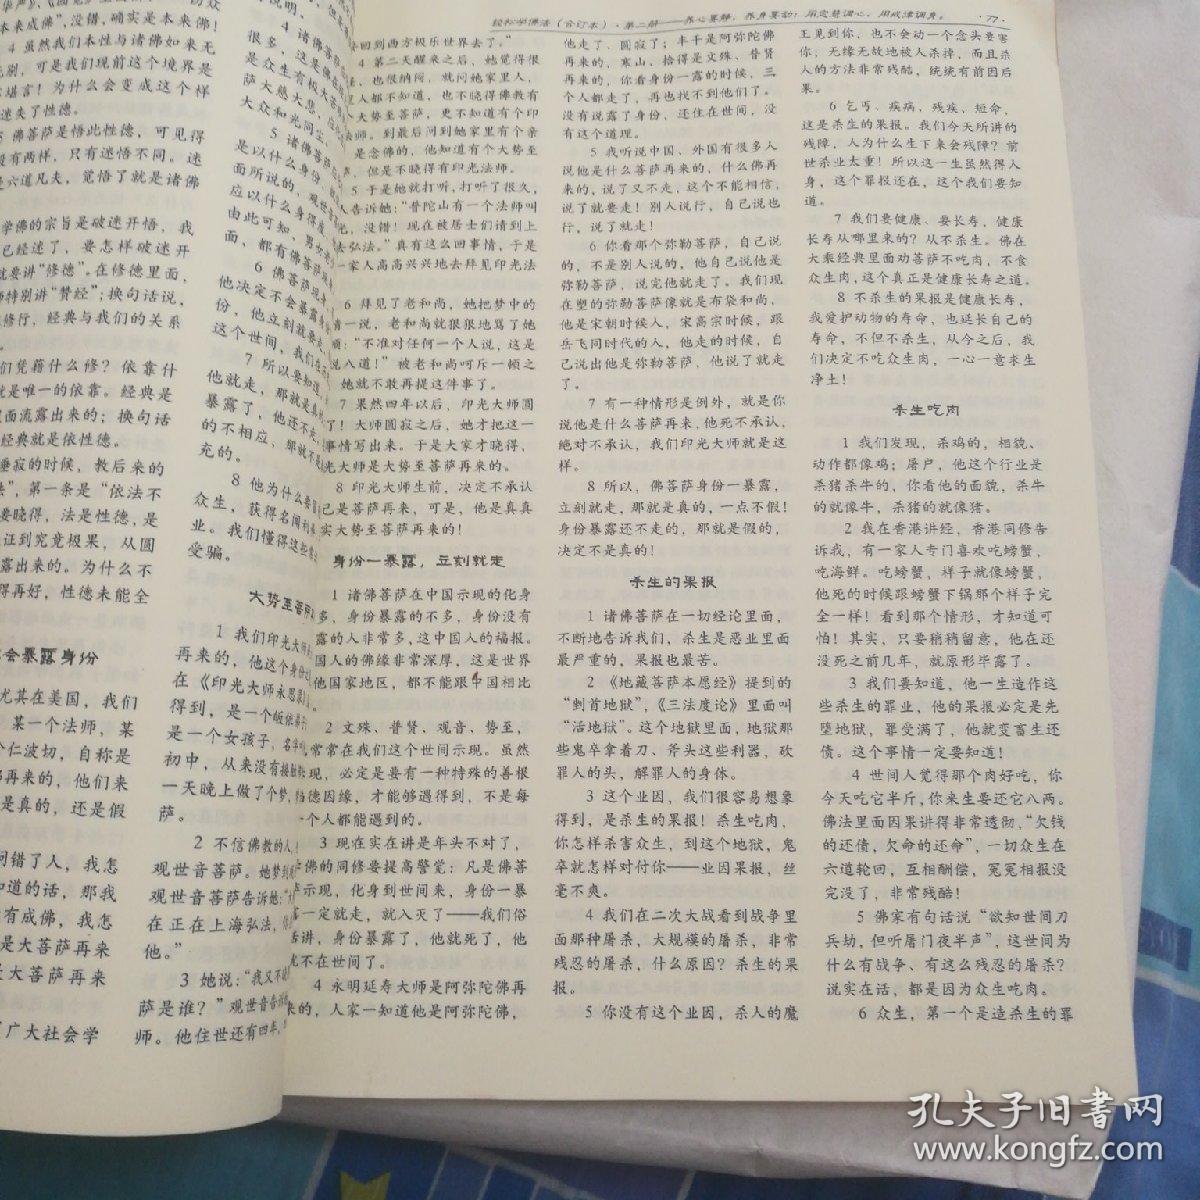 华严》、《
本来成佛”,没错,确实是本来佛!
4 虽然我们本性与诸佛如来无
可是我们现前这个境界是
堪言!为什么会变成这个样
迷失了性德。
佛菩萨是悟此性德,可见得
没有两样,只有迷悟不同。迷
是六道凡夫,觉悟了就是诸佛
学佛的宗旨是破迷开悟,我
已经述了,要怎样破迷开
就要讲“修德”。在修德里面,
师特别讲“赞经”;换句话说,
修行,经典与我们的关系
们凭藉什么修?依靠什
就是唯一的依靠。经典是
里面流露出来的;换句话
经典就是依性德。
垂寂的时候,教后来的
法”,第一条是“依法不
要晓得,法是性德,是
证到究竟极果,从圆
露出来的。为什么不
得再好,性德未能全
会暴露身份
尤其在美国,我们
某一个法师,某
个仁波切,自称是
再来的,他们来
是真的,还是假
问错了人,我怎
知道的话,那我
有成佛,我怎
是大菩萨再来
大菩萨再来
广大社会学
说明。
4 诸佛菩萨
很多,这是佛
是众生有极大
萨大慈大悲,
大众和光同尘
5 诸佛菩萨
是以什么身份
面所说的,观世
应以什么身得度
由此可知,男女老
面,都有佛菩萨
6 佛菩萨现身
他决定不会暴露身
份,他立刻就要走
这个世间,我们在
7 所以要知道,
他就走,那就是真的
暴露了,他还不走,
的不相应,那就不是
充的。
8 他为什么要冒
众生,获得名闻利养
业。我们懂得这些
受骗。
大势至菩萨
1 我们印光大师
再来的,他这个身份
在《印光大师永思
得到,是一个皈依弟子
是一个女孩子,名字
初中,从来没有接触
一天晚上做了个梦,
萨。
2 不信佛教的人
观世音菩萨。她梦到
观世音菩萨告诉她:
在正在上海弘法,
他。”
3 她说:“我又不认
萨是谁?”观世音告诉
师。他住世还有四年,
轻松学佛法(合订本)·第二册——养心要静,养身要动;用定慧调心,用戒律调身。 ·77·
回到西方极乐世界去了。”
4 第二天醒来之后,她觉得很
也很纳闷,就问她家里人,
人都不知道,也不晓得佛教有
大势至菩萨,更不知道有个印
法师。到最后问到她家里有个亲
是念佛的,他知道有个大势至
但是不晓得有印光法师。
5 于是她就打听,打听了很久,
人告诉她:“普陀山有一个法师叫
,没错!现在被居士们请到上
去弘法。”真有这么回事情,于是
一家人高高兴兴地去拜见印光法
6 拜见了老和尚,她把梦中的
一说,老和尚就狠狠地骂了她
顿:“不准对任何一个人说,这是
说八道!”被老和尚呵斥一顿之
她就不敢再提这件事了。
7 果然四年以后,印光大师圆
了!大师圆寂之后,她才把这一
事情写出来。于是大家才晓得,
光大师是大势至菩萨再来的。
8 印光大师生前,决定不承认
己是菩萨再来,可是,他是真真
实大势至菩萨再来的!
身份一暴露,立刻就走
1 诸佛菩萨在中国示现的化身
多,身份暴露的不多,身份没有
露的人非常多,这中国人的福报。
国人的佛缘非常深厚,这是世界
他国家地区,都不能跟中国相比
。
2 文殊、普贤、观音、势至,
常常在我们这个世间示现。虽然
现,必定是要有一种特殊的善根
德因缘,才能够遇得到,不是每
一个人都能遇到的。
3 现在实在讲是年头不对了,
学佛的同修要提高警觉:凡是佛菩
萨示现,化身到世间来,身份一暴
露一定就走,就入灭了——我们俗
话讲,身份暴露了,他就死了,他
就不在世间了。
4 永明延寿大师是阿弥陀佛再
来的,人家一知道他是阿弥陀佛,
他走了、圆寂了;丰干是阿弥陀佛
再来的,寒山、拾得是文殊、普贤
再来的,你看身份一露的时候,三
个人都走了,再也找不到他们了。
没有说露了身份,还住在世间,没
有这个道理。
5 我听说中国、外国有很多人
说他是什么菩萨再来,什么佛再
来的,说了又不走,这个不能相信,
说了就要走!别人说行,自己说也
行,说了就走!
6 你看那个弥勒菩萨,自己说
的,不是别人说的,他自己说他是
弥勒菩萨,说完他就走了。我们现
在塑的弥勒菩萨像就是布袋和尚,
他是宋朝时候人,宋高宗时候,跟
岳飞同时代的人,他走的时候,自
己说出他是弥勒菩萨,他说了就走
了。
7 有一种情形是例外,就是你
说他是什么菩萨再来,他死不承认,
绝对不承认,我们印光大师就是这
样。
8 所以,佛菩萨身份一暴露,
立刻就走,那就是真的,一点不假!
身份暴露还不走的,那就是假的,
决定不是真的!
杀生的果报
1 诸佛菩萨在一切经论里面,
不断地告诉我们,杀生是恶业里面
最严重的,果报也最苦。
2 《地藏菩萨本愿经》提到的
“剉首地狱”,《三法度论》里面叫
“活地狱”。这个地狱里面,地狱那
些鬼卒拿着刀、斧头这些利器,砍
罪人的头,解罪人的身体。
3 这个业因,我们很容易想象
得到,是杀生的果报!杀生吃肉,
你怎样杀害众生,到这个地狱,鬼
卒就怎样对付你——业因果报,丝
毫不爽。
4 我们在二次大战看到战争里
面那种屠杀,大规模的屠杀,非常
残忍的屠杀,什么原因?杀生的果
报。
5 你没有这个业因,杀人的魔
王见到你,也不会动一个念头要害
你,无缘无故地被人杀掉,而且杀
人的方法非常残酷,统统有前因后
果。
6 乞丐、疾病、残疾、短命,
这是杀生的果报。我们今天所讲的
残障,人为什么生下来会残障?前
世杀业太重!所以这一生虽然得人
身,这个罪报还在,这个我们要知
道。
7 我们要健康、要长寿,健康
长寿从哪里来的?从不杀生。佛在
大乘经典里面劝菩萨不吃肉,不食
众生肉,这个真正是健康长寿之道。
8 不杀生的果报是健康长寿,
我爱护动物的寿命,也延长自己的
寿命,不但不杀生,从今之后,我
们决定不吃众生肉,一心一意求生
净土!
杀生吃肉
1 我们发现,杀鸡的,相貌、
动作都像鸡;屠户,他这个行业是
杀猪杀牛的,你看他的面貌,杀牛
的就像牛,杀猪的就像猪。
2 我在香港讲经,香港同修告
诉我,有一家人专门喜欢吃螃蟹,
吃海鲜。吃螃蟹,样子就像螃蟹,
他死的时候跟螃蟹下锅那个样子完
全一样!看到那个情形,才知道可
怕!其实、只要稍稍留意,他在还
没死之前几年,就原形毕露了。
3 我们要知道,他一生造作这
些杀生的罪业,他的果报必定是先
堕地狱,罪受满了,他就变畜生还
债。这个事情一定要知道!
4 世间人觉得那个肉好吃,你
今天吃它半斤,你来生要还它八两。
佛法里面因果讲得非常透彻,“欠钱
的还债,欠命的还命”,一切众生在
六道轮回,互相酬偿,冤冤相报没
完没了,非常残酷!
5 佛家有句话说“欲知世间刀
兵劫,但听屠门夜半声”,这世间为
什么有战争、有这么残忍的屠杀?
说实在话,都是因为众生吃肉。
6 众生,第一个是造杀生的罪
孔夫子旧书网
www.kongfz.com